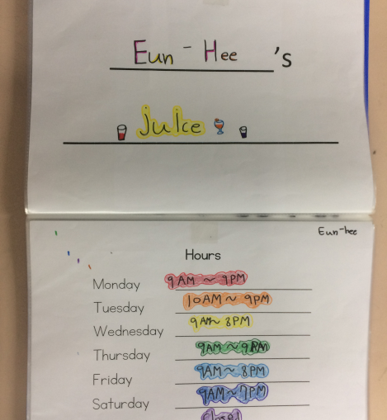 Eun-Hee's
juice
Eun-hee
Hours
Monday 9AM ~ 9PM
Tuesday 10AM ~ 9PM
Wednesday 9AM ~ 8PM
Thursday 9AM ~ 9PM
Friday 9AM ~ 8PM
Saturday 9AM ~ 7PM